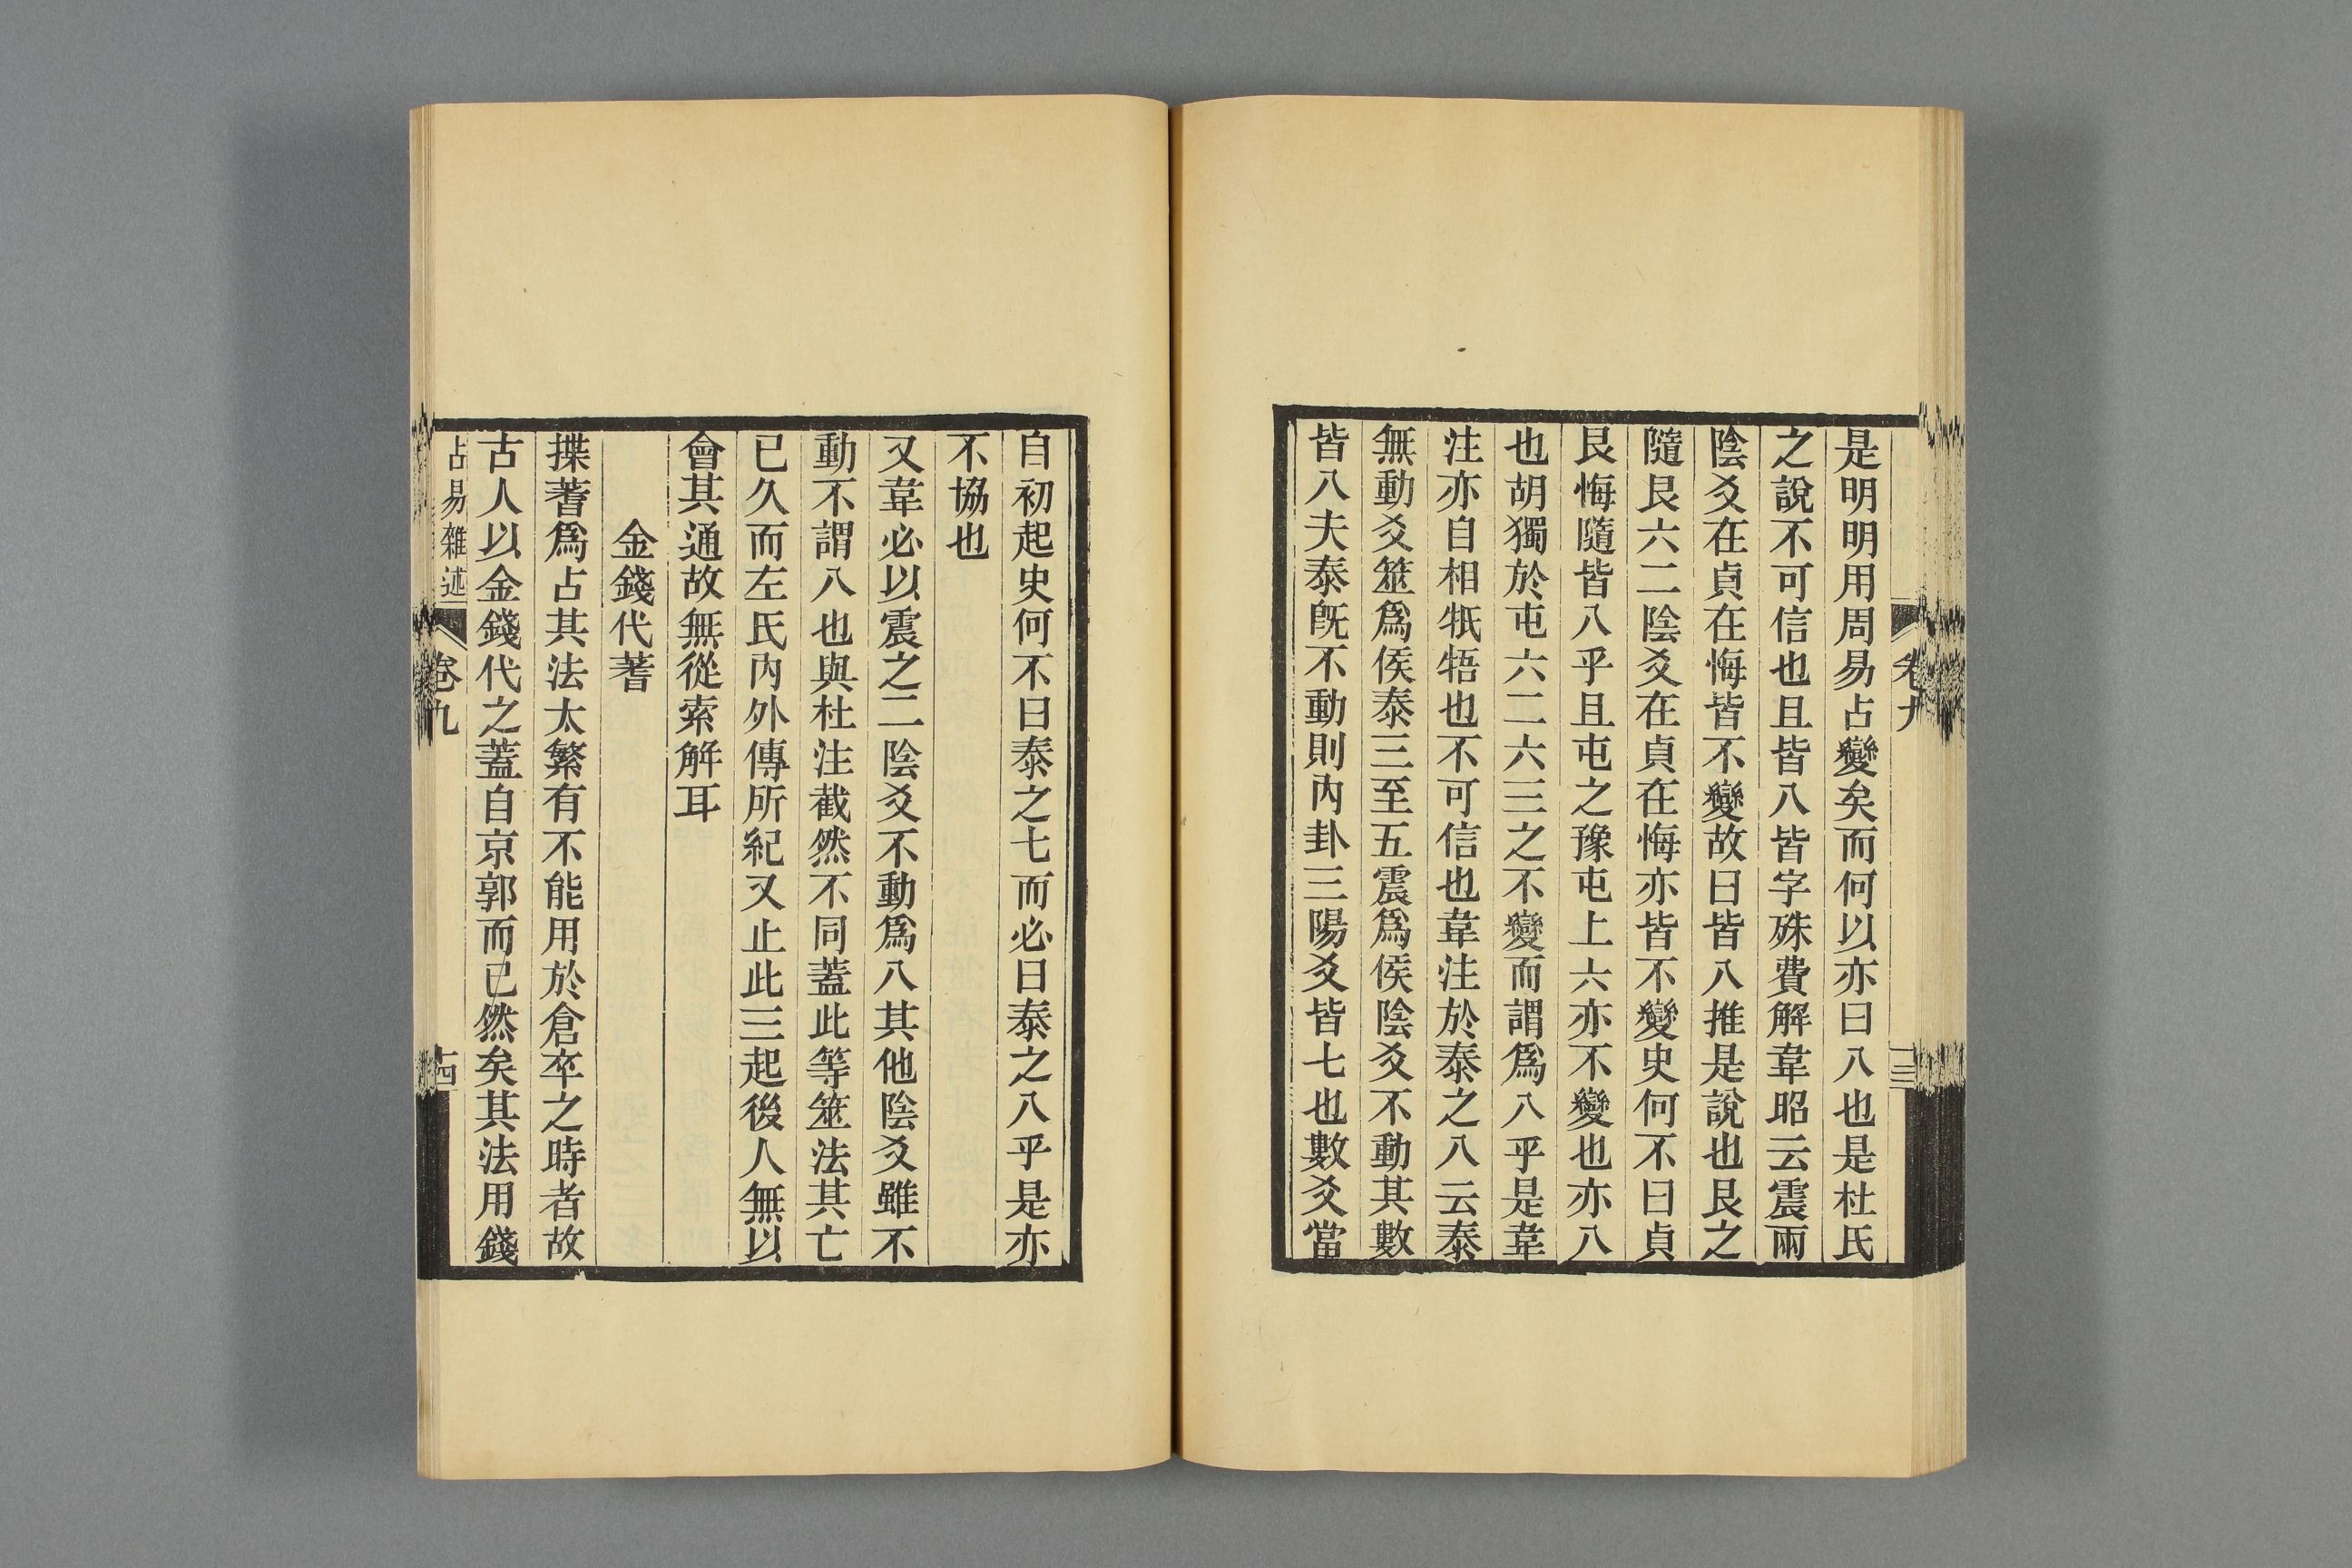 卷九
十三
是明明用周易占變矣而何以亦曰八也是杜氏
之說不可信也且皆八皆字殊費解韋昭云震兩
陰爻在貞在悔皆不變故曰皆八推是說也艮之
隨艮六二陰爻在貞在悔亦皆不變史何不曰貞
艮悔隨皆八乎且屯之豫屯上六亦不變也亦八
也胡獨於屯六二六三之不變而謂爲八乎是韋
注亦自相牴牾也不可信也韋注於泰之八云泰
無動爻筮爲侯泰三至五震爲侯陰爻不動其數
皆八夫泰既不動則內卦三陽爻皆七也數爻當
自初起史何不曰泰之七而必曰泰之八乎是亦
不協也
又韋必以震之二陰爻不動爲八其他陰爻雖不
動不謂八也與杜注截然不同蓋此等筮法其亡
已久而左氏內外傳所紀又止此三起後人無以
會其通故無從索解耳
金錢代蓍
揲蓍爲占其法太繁有不能用於倉卒之時者故
古人以金錢代之蓋自京郭而已然矣其法用錢
占易雜述
卷九
十四